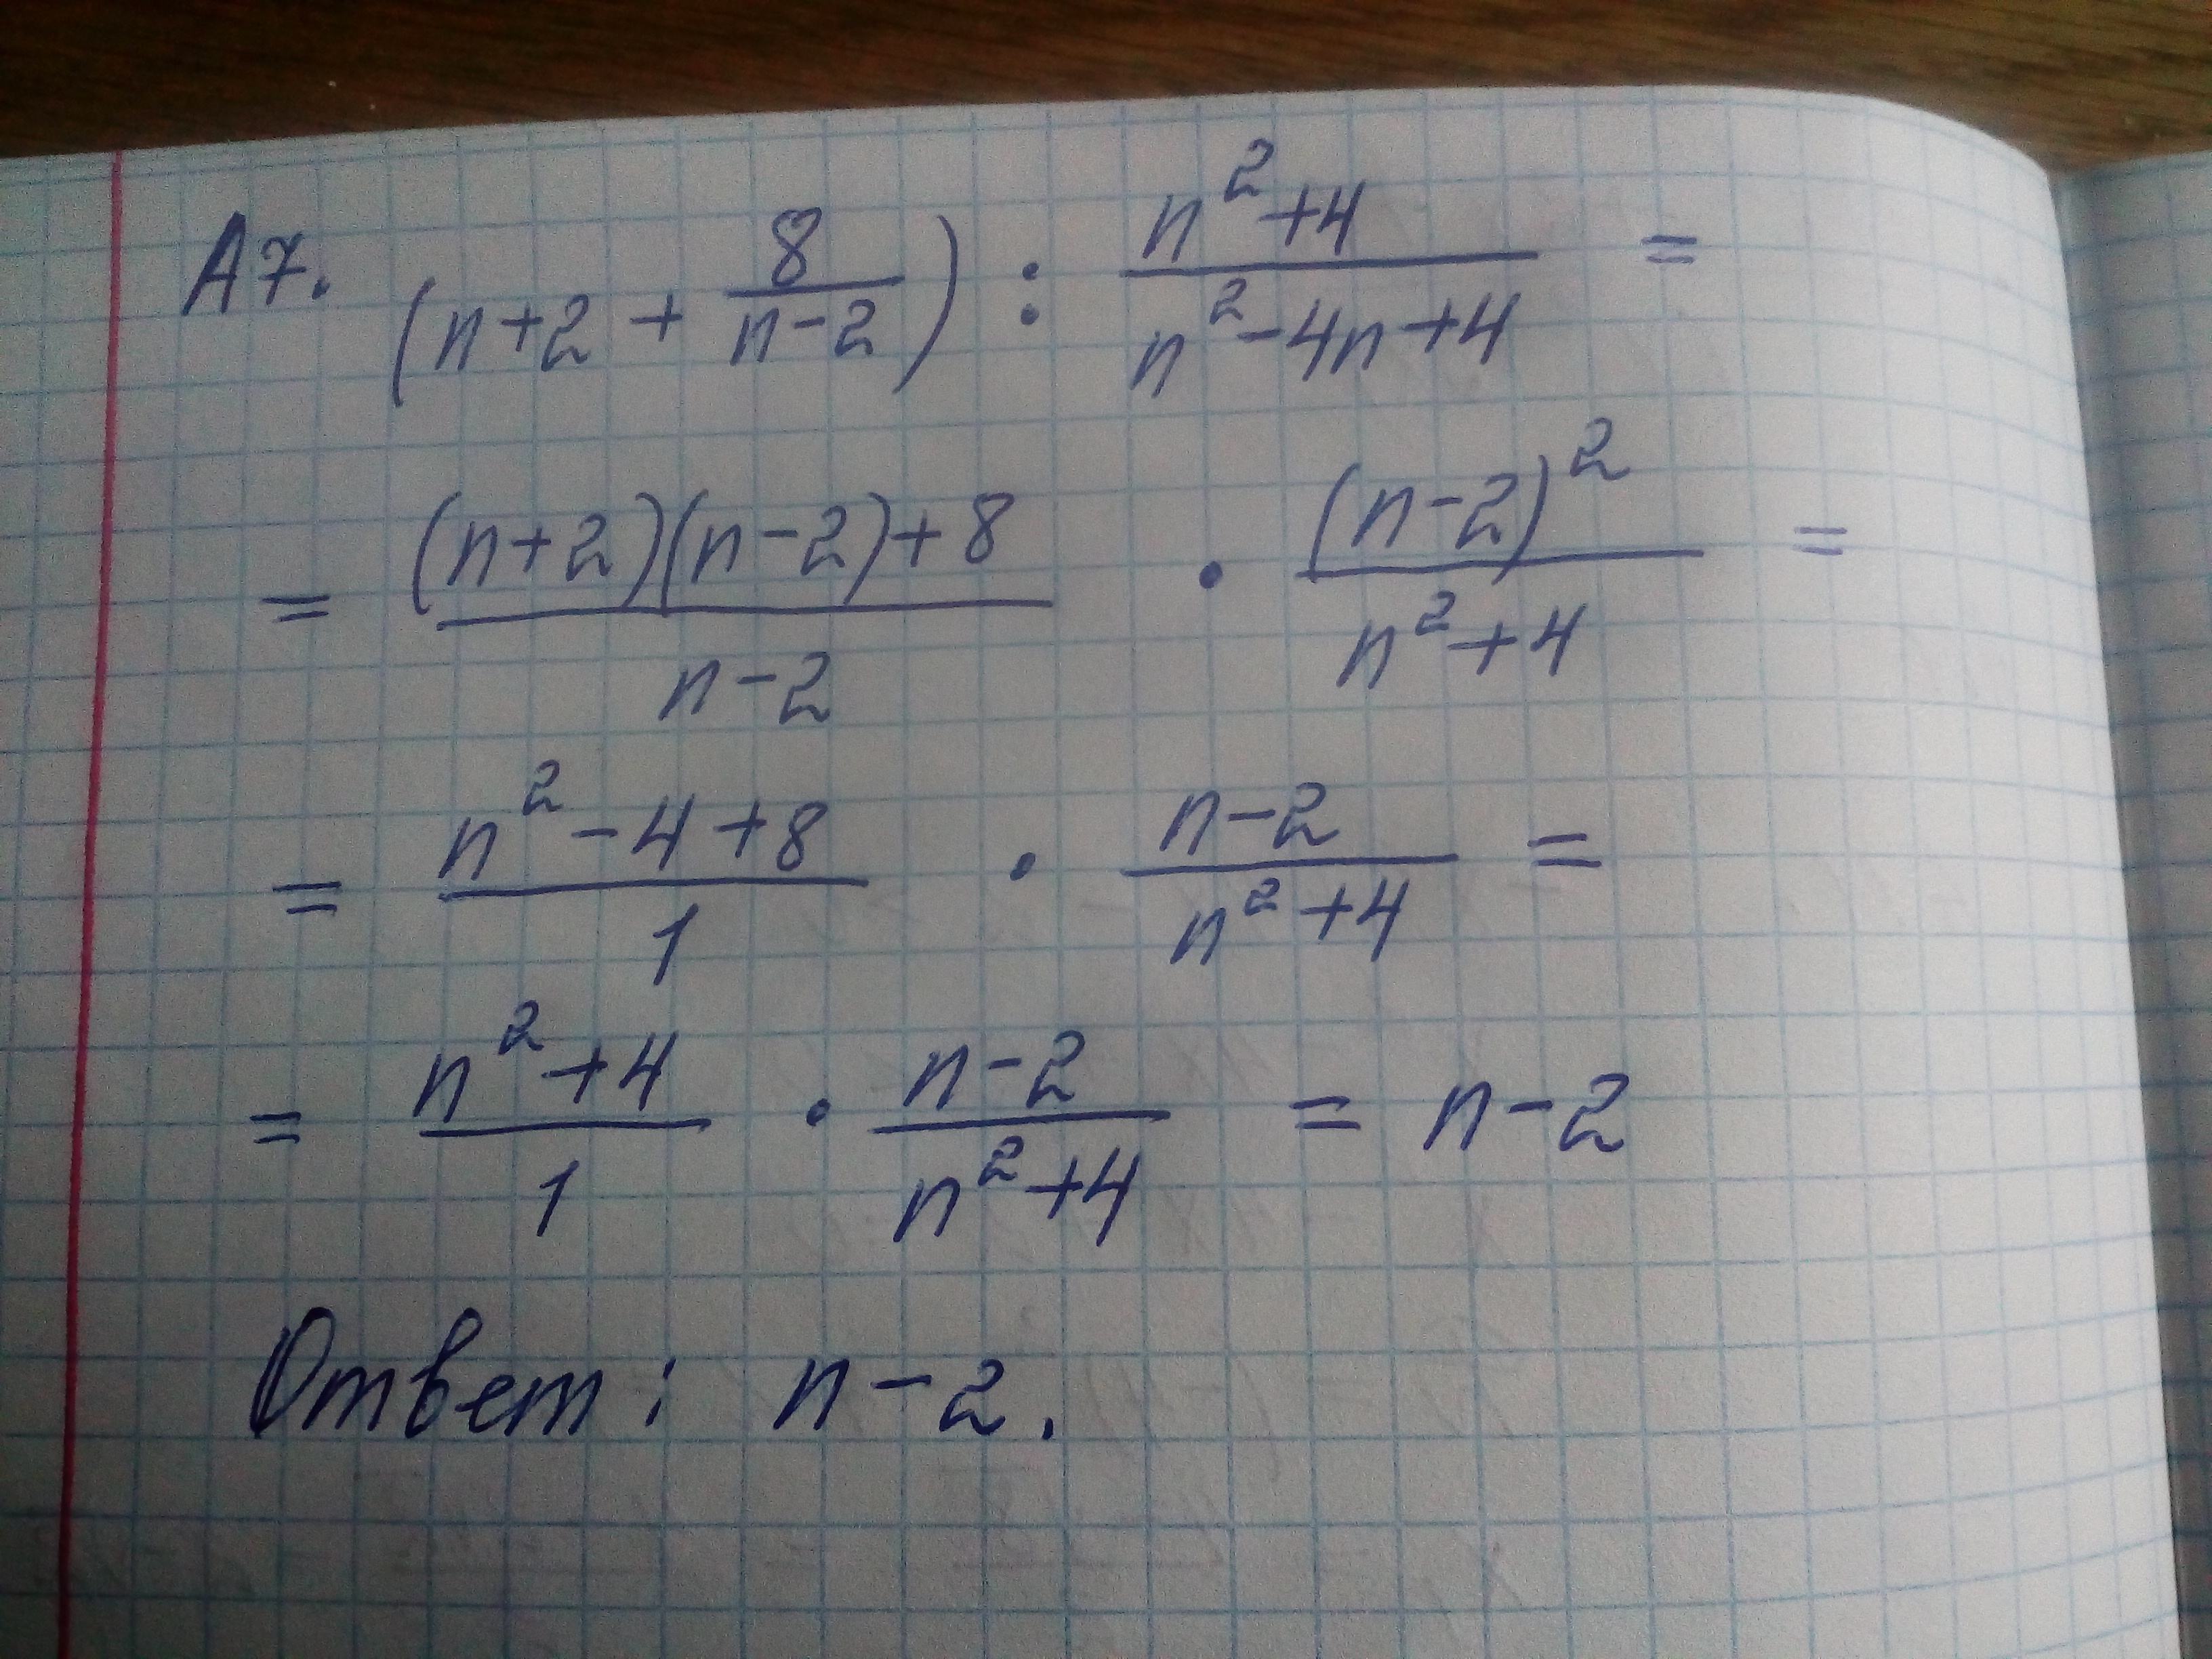 А7. (n+2 + 8/(n-2)) : (n²+4)/(n²-4n+4) =
= ((n+2)(n-2)+8)/(n-2) · (n-2)²/(n²+4) =
= (n²-4+8)/1 · (n-2)/(n²+4) =
= (n²+4)/1 · (n-2)/(n²+4) = n-2
Ответ: n-2.